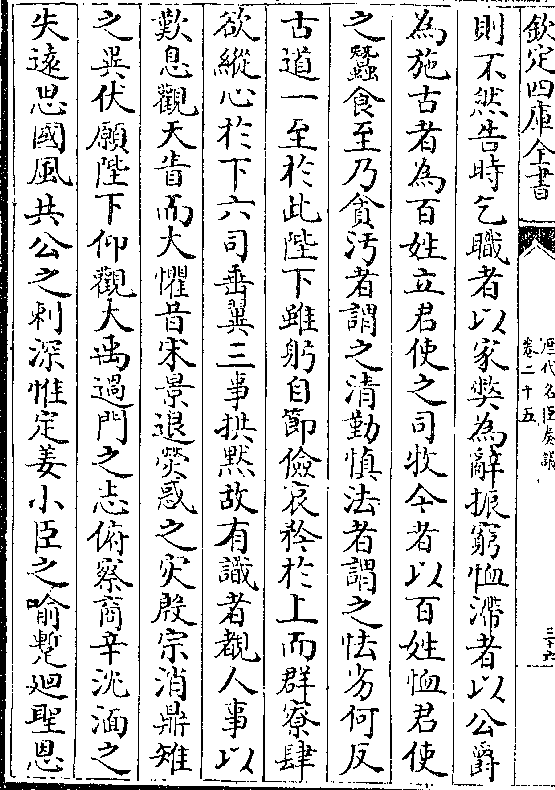 欽定四庫全書
歷代名臣奏議
卷二十五
三十六
則不然告時乞職者以家弊為辭振窮恤滯者以公爵
為施古者為百姓立君使之司牧今者以百姓恤君使
之蠶食至乃貪汚者謂之清勤慎法者謂之怯劣何反
古道一至於此陛下雖躬自節儉哀矜於上而群寮肆
欲縱心於下六司垂翼三事拱黙故有識者覩人事以
歎息觀天眚而大懼昔宋景退熒惑之灾殷宗消鼎雉
之異伏願陛下仰觀大禹過門之志俯察商辛沈湎之
失遠思國風共公之刺深惟定姜小臣之喻蹔廻聖恩